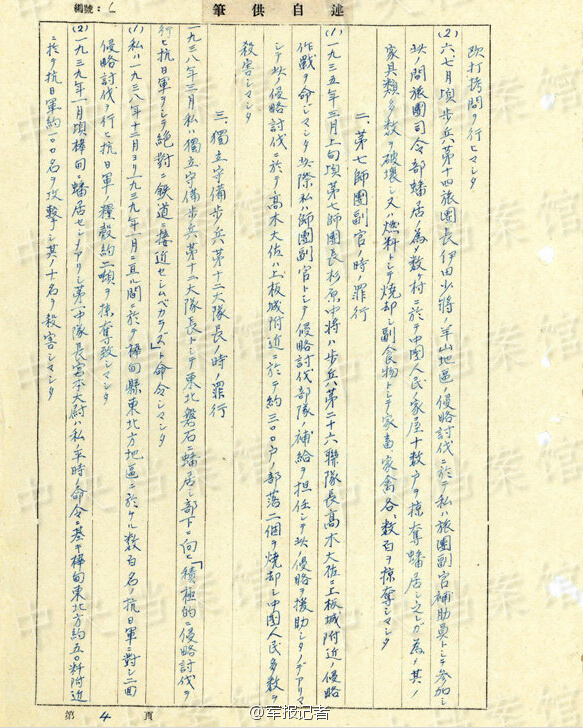 編號：6
述自供筆
毆打拷問ヲ行ヒマシタ
(2)六、七月頃歩兵第十四旅團長伊田少將ノ羊山地區ノ侵略討伐ニ於テ私ハ旅團副官補助員トシテ参加シ
次ノ間旅團司令部蟠居ノ為メ数ケ村ニ於テ中國人民ノ家屋十数戸ヲ掠奪蟠居シ之レガ為メ其ノ
家具類多数ヲ破壊シ又ハ燃料トシテ焼却シ副食物トシテ家畜、家禽各数百ヲ掠奪シマシタ
二、第七師團副官ノ時ノ罪行
(1)一九三五年三月上旬頃第七師團長杉原中將ハ歩兵第二十六聯隊長高木大佐ニ上板城附近ノ侵略
作戰ヲ命シマシタ此際私ハ師團副官トシテ侵略討伐部隊ノ補給ヲ担任シテ此ノ侵略ヲ援助シタノデアリマ
シテ此ノ侵略討伐ニ於テ高木大佐ハ上板城附近ニ於テ約三〇〇戸ノ部落二個ヲ焼却シ中國人民多数ヲ
殺害シマシタ
三、獨立守備歩兵第十二大隊長ノ時ノ罪行
一九三八年三月私ハ獨立守備歩兵第十二大隊長トシテ東北磐石ニ蟠居シ部下ニ向ヒ「積極的ニ侵略討伐ヲ
行ヒ抗日軍ヲシテ絶對ニ鉄道ニ接近セシムベカラズ」ト命令シマシタ
(1)私ハ一九三八年十二月ヨリ一九三九年一月ニ亘ル間ニ於テ樺甸縣東北方地區ニ於ケル数百名ノ抗日軍ニ對シ二回
侵略討伐ヲ行ヒ抗日軍ノ糧穀約二頓ヲ掠奪致シマシタ
(2)一九三九年一月頃樺甸ニ蟠居セシメアリシ第一中隊長宮本大尉ハ私ノ平時ノ命令ニ基キ樺甸東北方約五〇粁附近
ニ於テ抗日軍約一〇〇名ヲ攻撃シ其ノ十名ヲ殺害シマシタ
第4頁
中央档案馆
@军报记者